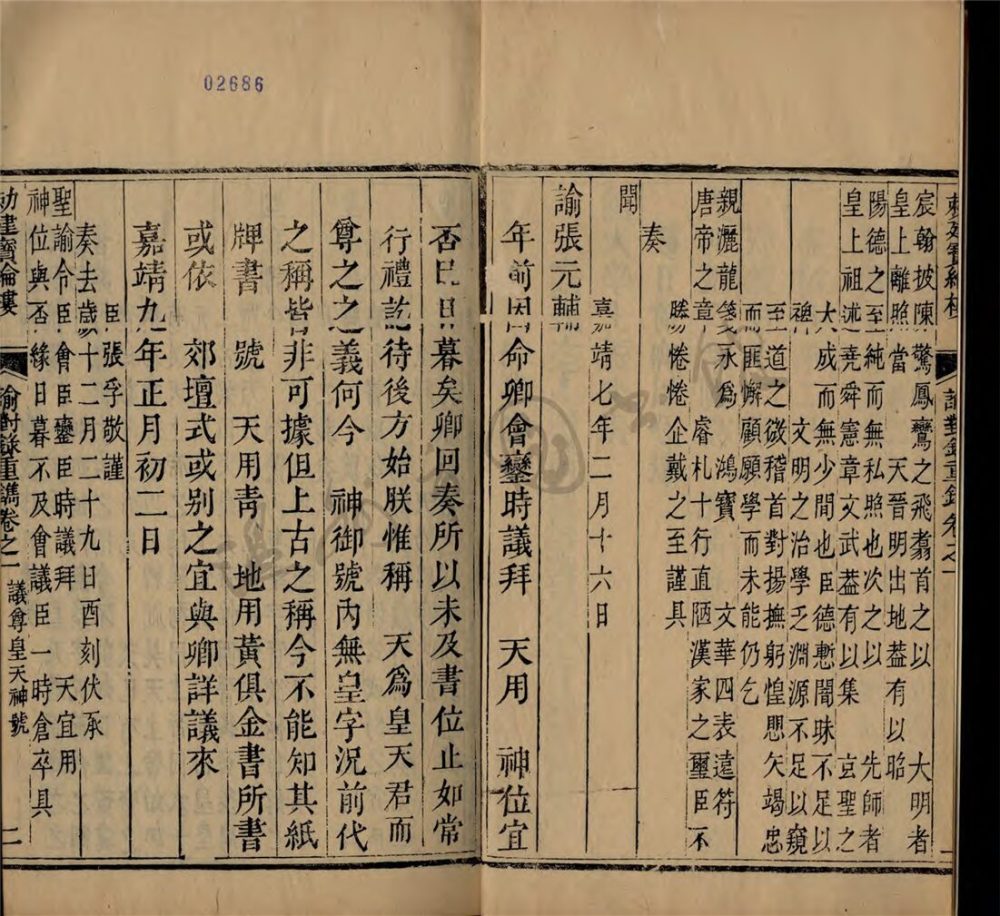 02686
宸翰披陳驚鳳鸞之飛翥首之以　大明者
皇上離照當　天晉明出地葢有以昭
陽德之至純而無私照也次之以　先師者
皇上祖述堯舜憲章文武葢有以集　玄聖之
大成而無少間也臣德慙闇昧不足以
裨　文明之治學乏淵源不足以窺
至道之微稽首對揚撫躬惶思矢竭忠
而匪懈顧願學而未能仍乞
親灑龍箋永爲　鴻寶　文華四表遠符
唐帝之章　睿札十行直陋漢家之璽臣不
勝惓惓企戴之至謹具
奏
聞
嘉靖七年二月十六日
諭張元輔
年前因命卿會鑾時議拜　天用　神位宜
否已日暮矣卿回奏所以未及書位止如常
行禮訖待後方始朕惟稱　天爲皇天君而
尊之之義何今　神御號內無皇字況前代
之稱皆非可據但上古之稱今不能知其紙
牌書　號　天用靑　地用黃俱金書所書
或依　郊壇式或別之宜與卿詳議來
嘉靖九年正月初二日
臣張孚敬謹
奏去歲十二月二十九日酉刻伏承
聖諭令臣會臣鑾臣時議拜　天宜用
神位與否緣日暮不及會議臣一時倉卒具
勅建寶綸樓
諭對錄重鐫卷之一
議尊皇天神號
二